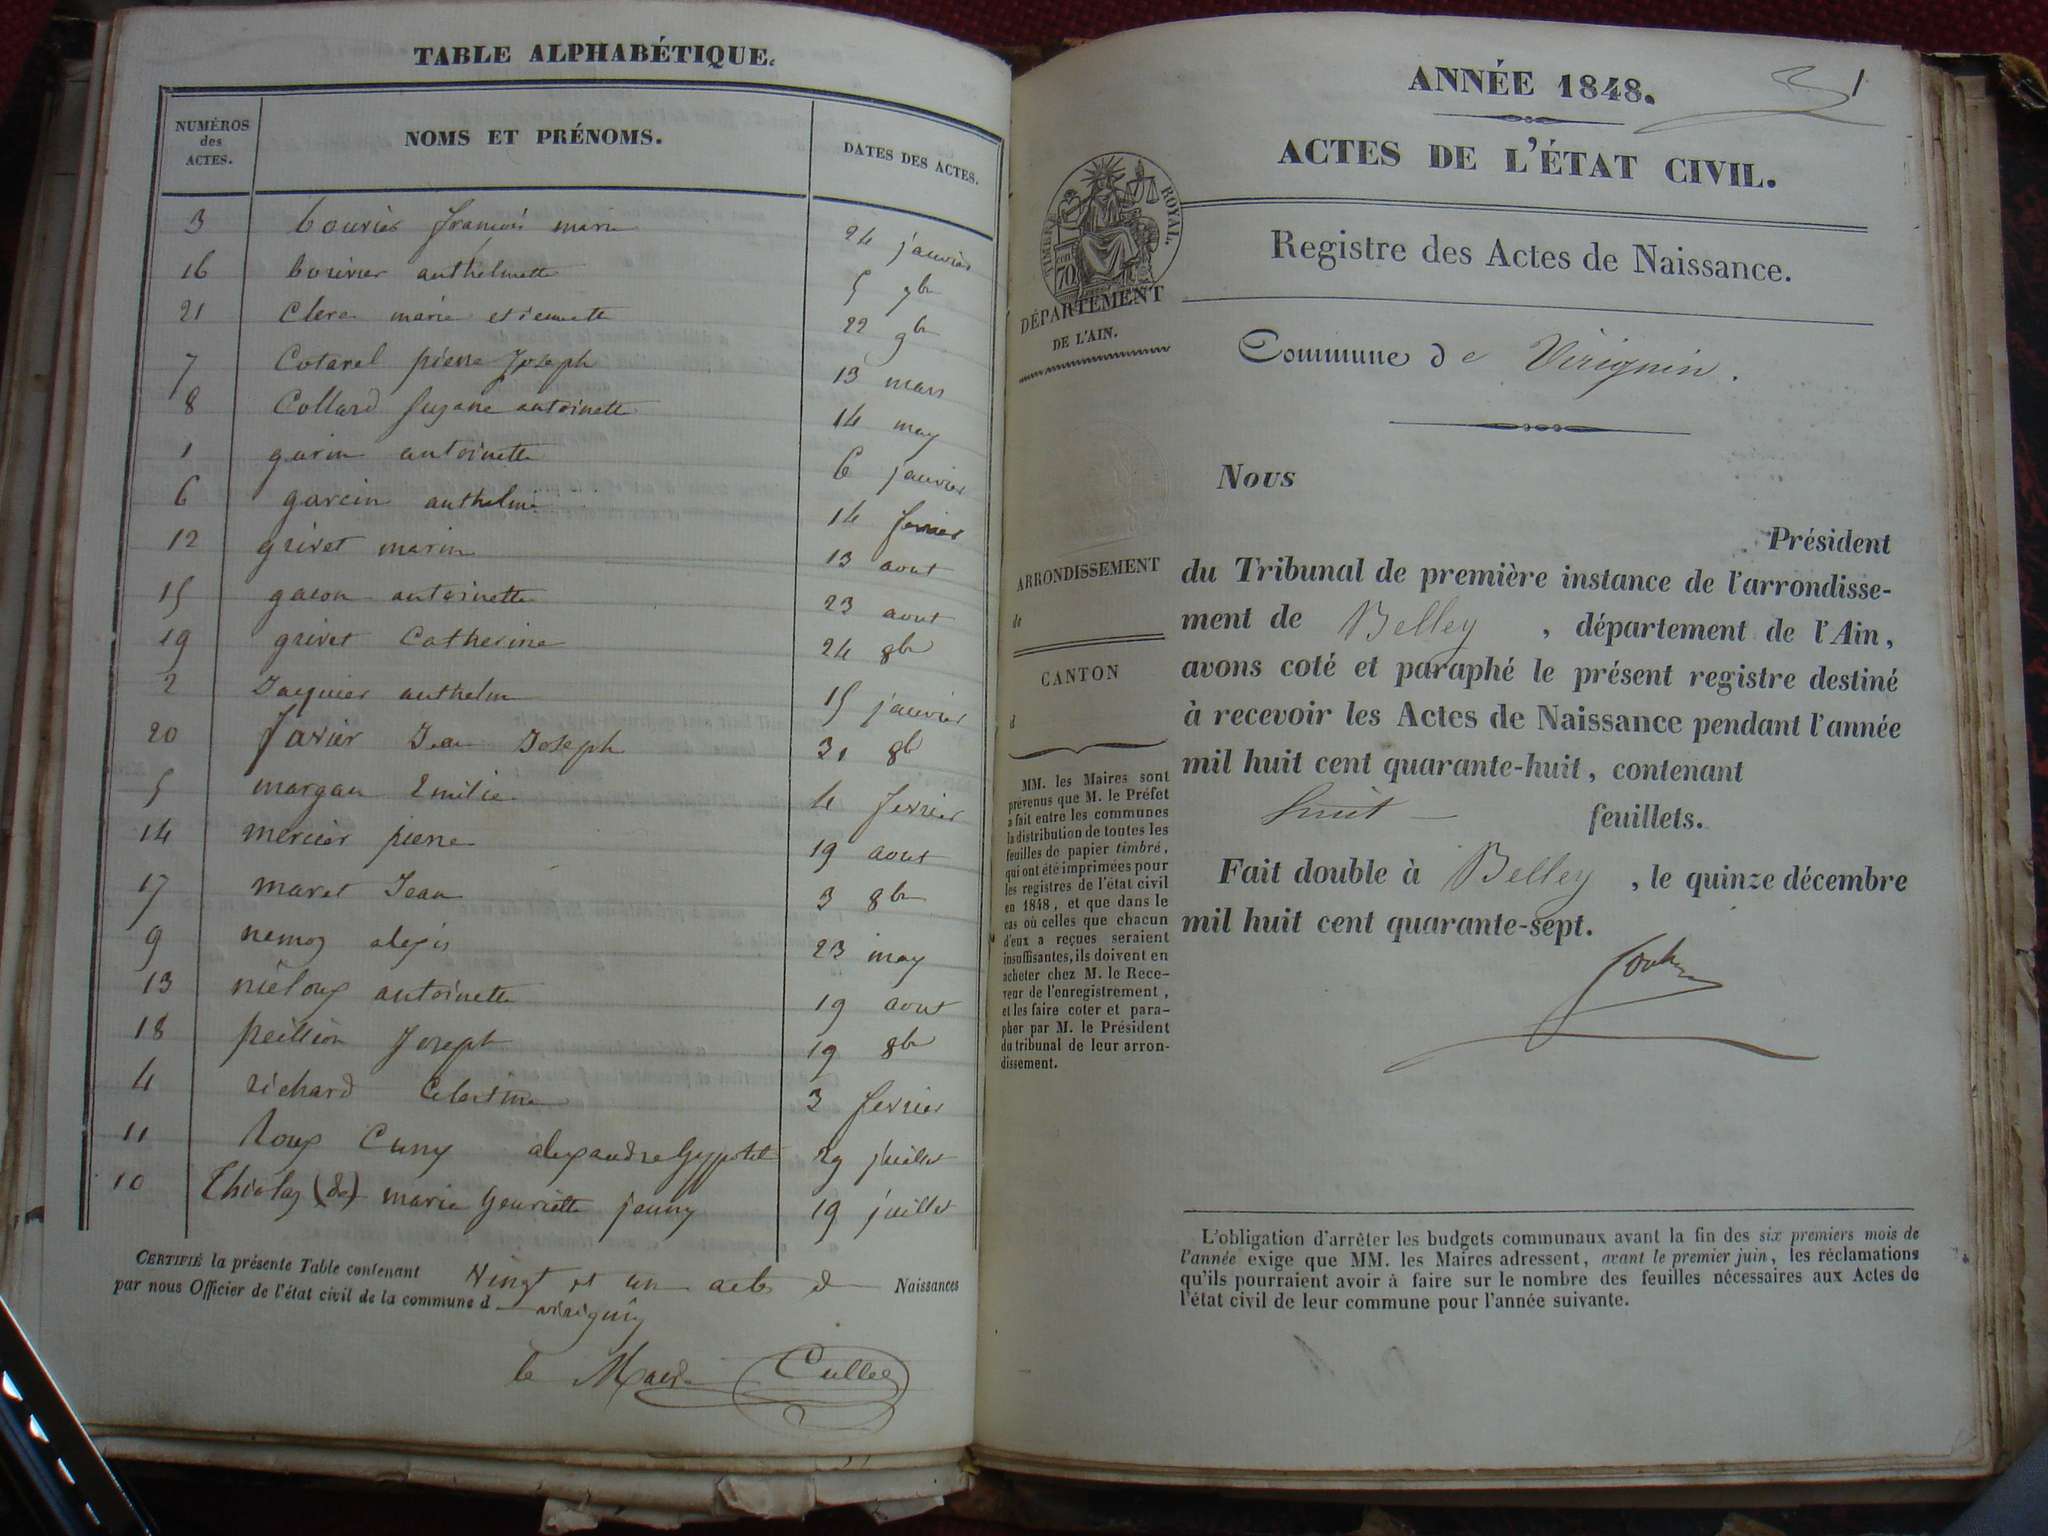 TABLE ALPHABÉTIQUE.
NUMÉROS des ACTES. NOMS ET PRÉNOMS. DATES DES ACTES.
3 bouvier françois marie 24 janvier
16 bouvier anthelmette 5 9bre
21 Clerc marie etiennette 22 9bre
7 Cotarel pierre Joseph 13 mars
8 Collard Suzane antoinette 14 may
1 garin antoinette 6 janvier
6 garcin anthelme 14 fevrier
12 grivet marin 13 aout
15 gacon antoinette 23 aout
19 grivet Catherine 24 8bre
2 Jaquier anthelm 15 janvier
20 Javier Jean Joseph 31 8bre
5 margau Emilie 4 fevrier
14 mercier pierre 19 aout
17 maret Jean 3 8bre
9 nemoz alexis 23 may
13 nieloux antoinette 19 aout
18 peillion Joseph 19 8bre
4 richard Celestine 3 fevrier
11 Roux Cuny alexandre hyppolite 29 juillet
10 Thiolaz (de) marie henriette jenny 19 juillet
CERTIFIÉ la présente Table contenant Vingt et un actes d Naissances
par nous Officier de l'état civil de la commune d virignin
le Maire Cullet
ANNÉE 1848.
1
ACTES DE L'ÉTAT CIVIL.
TIMBRE ROYAL.
70
Registre des Actes de Naissance.
DÉPARTEMENT
DE L'AIN.
Commune de Virignin.
Nous
Président
du Tribunal de première instance de l'arrondisse-
ment de Belley, département de l'Ain,
avons coté et paraphé le présent registre destiné
à recevoir les Actes de Naissance pendant l'année
mil huit cent quarante-huit, contenant
huit feuillets.
Fait double à Belley, le quinze décembre
mil huit cent quarante-sept.
ARRONDISSEMENT
de
CANTON
d
MM. les Maires sont
prévenus que M. le Préfet
a fait entre les communes
la distribution de toutes les
feuilles de papier timbré,
qui ont été imprimées pour
les registres de l'état civil
en 1848, et que dans le
cas où celles que chacun
d'eux a reçues seraient
insuffisantes, ils doivent en
acheter chez M. le Rece-
veur de l'enregistrement,
et les faire coter et para-
pher par M. le Président
du tribunal de leur arron-
dissement.
L'obligation d'arrêter les budgets communaux avant la fin des six premiers mois de
l'année exige que MM. les Maires adressent, avant le premier juin, les réclamations
qu'ils pourraient avoir à faire sur le nombre des feuilles nécessaires aux Actes de
l'état civil de leur commune pour l'année suivante.